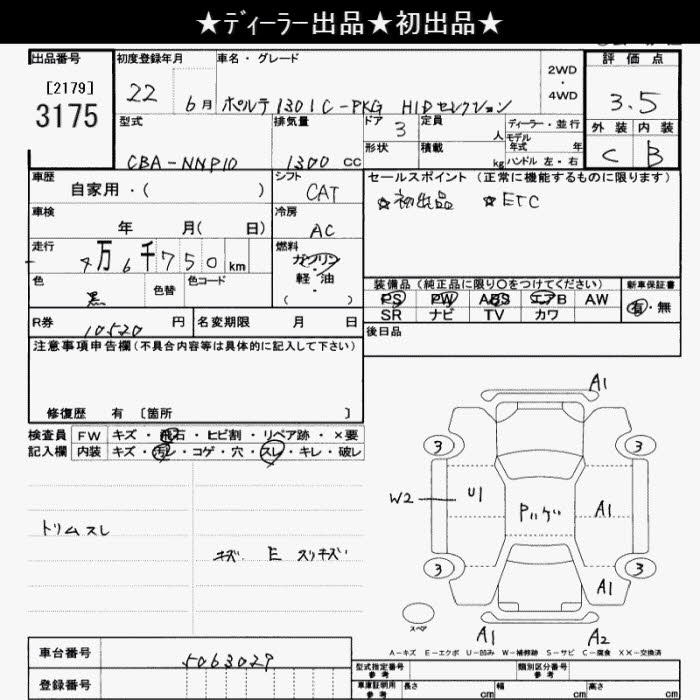 ★ディーラー出品★初出品★
出品番号
[2179]
3175
初度登録年月
22
6月
車名・グレード
ポルテ 1301C-PKG HIDセレクション
2WD
・
4WD
評価点
3.5
外装 内装
C B
型式
CBA-NNP10
排気量
1300 cc
ドア 3
形状
定員
人
積載
kg
ディーラー・並行
モデル
年式 年
ハンドル 左・右
車歴
自家用・( )
シフト
CAT
セールスポイント (正常に機能するものに限ります)
☆初出品 ☆ETC
車検
年 月( 日)
冷房
AC
走行
4万6千750km
燃料
ガソリン
軽・油
・
( )
色
黒
色替
色コード
装備品(純正品に限り○をつけてください)
PS PW ABS エアB AW
SR ナビ TV カワ
新車保証書
有・無
R券
10520 円
名変期限 月 日
後日品
注意事項申告欄(不具合内容等は具体的に記入して下さい)
修復歴 有 [箇所 ]
検査員 FW キズ・飛石・ヒビ割・リペア跡・×要
記入欄 内装 キズ・汚レ・コゲ・穴・スレ・キレ・破レ
トリムスレ
キズ E スリキズ
A1
3 3
W2 U1 A1
3 3
A1
スペア
A1 A2
A-キズ E-エクボ U-凹み W-補修跡 S-サビ C-腐食 XX-交換済
車台番号
5063029
登録番号
型式指定番号
参考
類別区分番号
参考
車庫証明用
参考
長さ cm 幅 cm 高さ cm